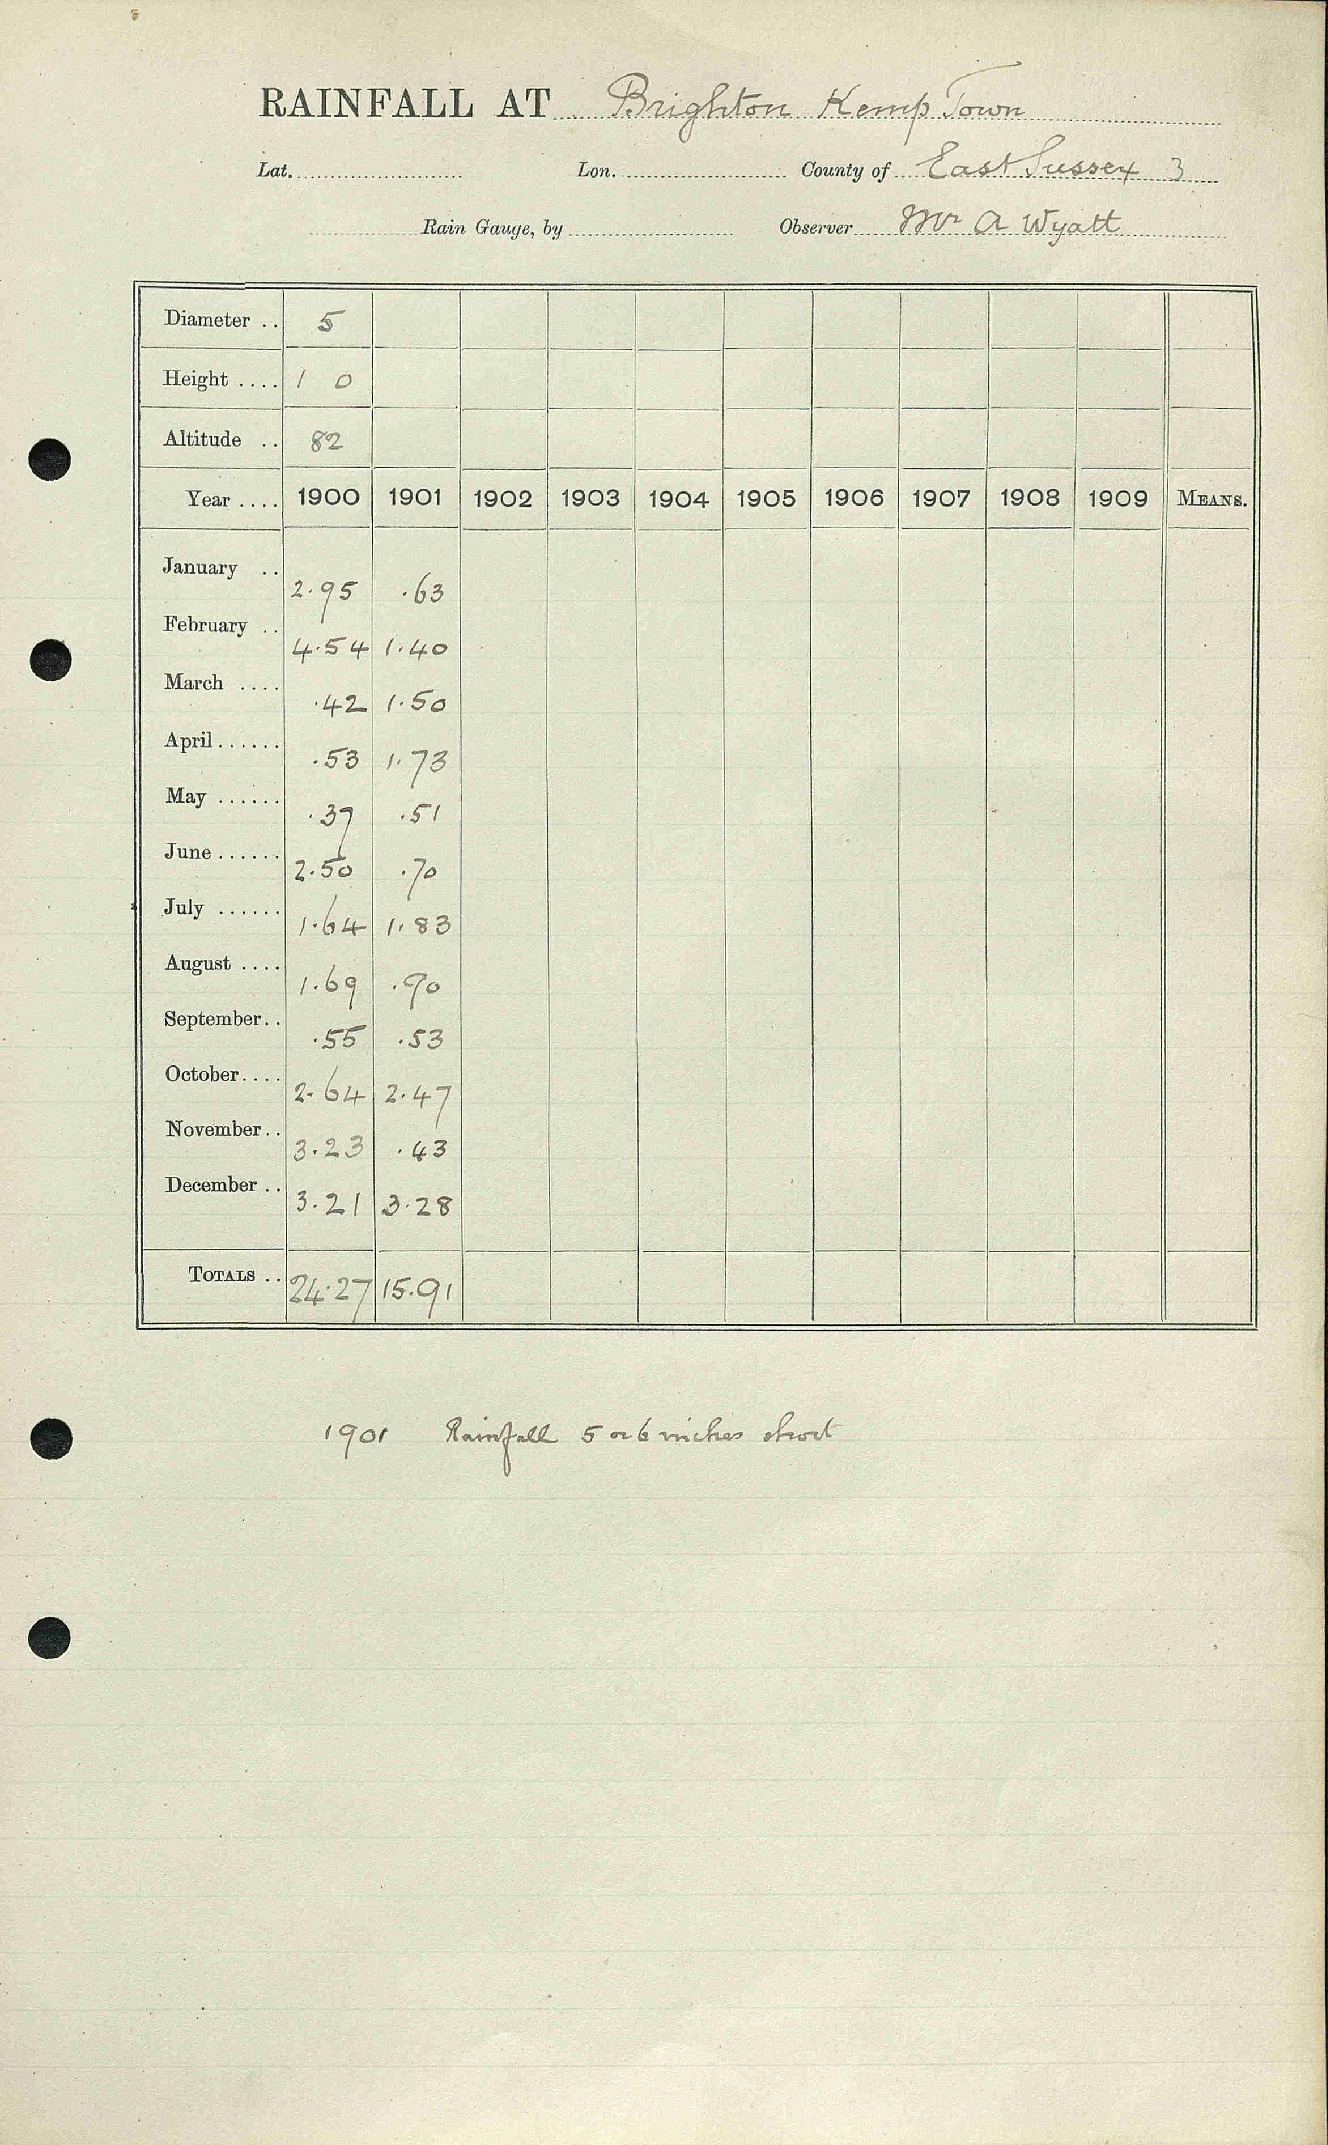 RAINFALL AT Brighton Kemp Town
Lat. Lon. County of East Sussex 3
Rain Gauge, by Observer Mr A Wyatt
Diameter .. 5
Height .... 1 0
Altitude .. 82
Year .... 1900 1901 1902 1903 1904 1905 1906 1907 1908 1909 MEANS.
January .. 2.95 .63
February .. 4.54 1.40
March .... .42 1.50
April ...... .53 1.73
May ...... .37 .51
June ...... 2.50 .70
July ...... 1.64 1.83
August .... 1.69 .90
September.. .55 .53
October.... 2.64 2.47
November.. 3.23 .43
December .. 3.21 3.28
TOTALS .. 24.27 15.91
1901 Rainfall 5 or 6 inches short